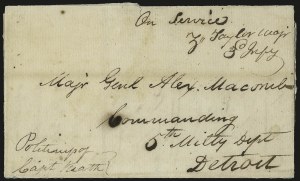 On Service
Z Taylor Majr
3d Infy
Majr Genl Alex. Macomb
Commanding
5th Milty Dept
Detroit
Politeness of
Capt Heath